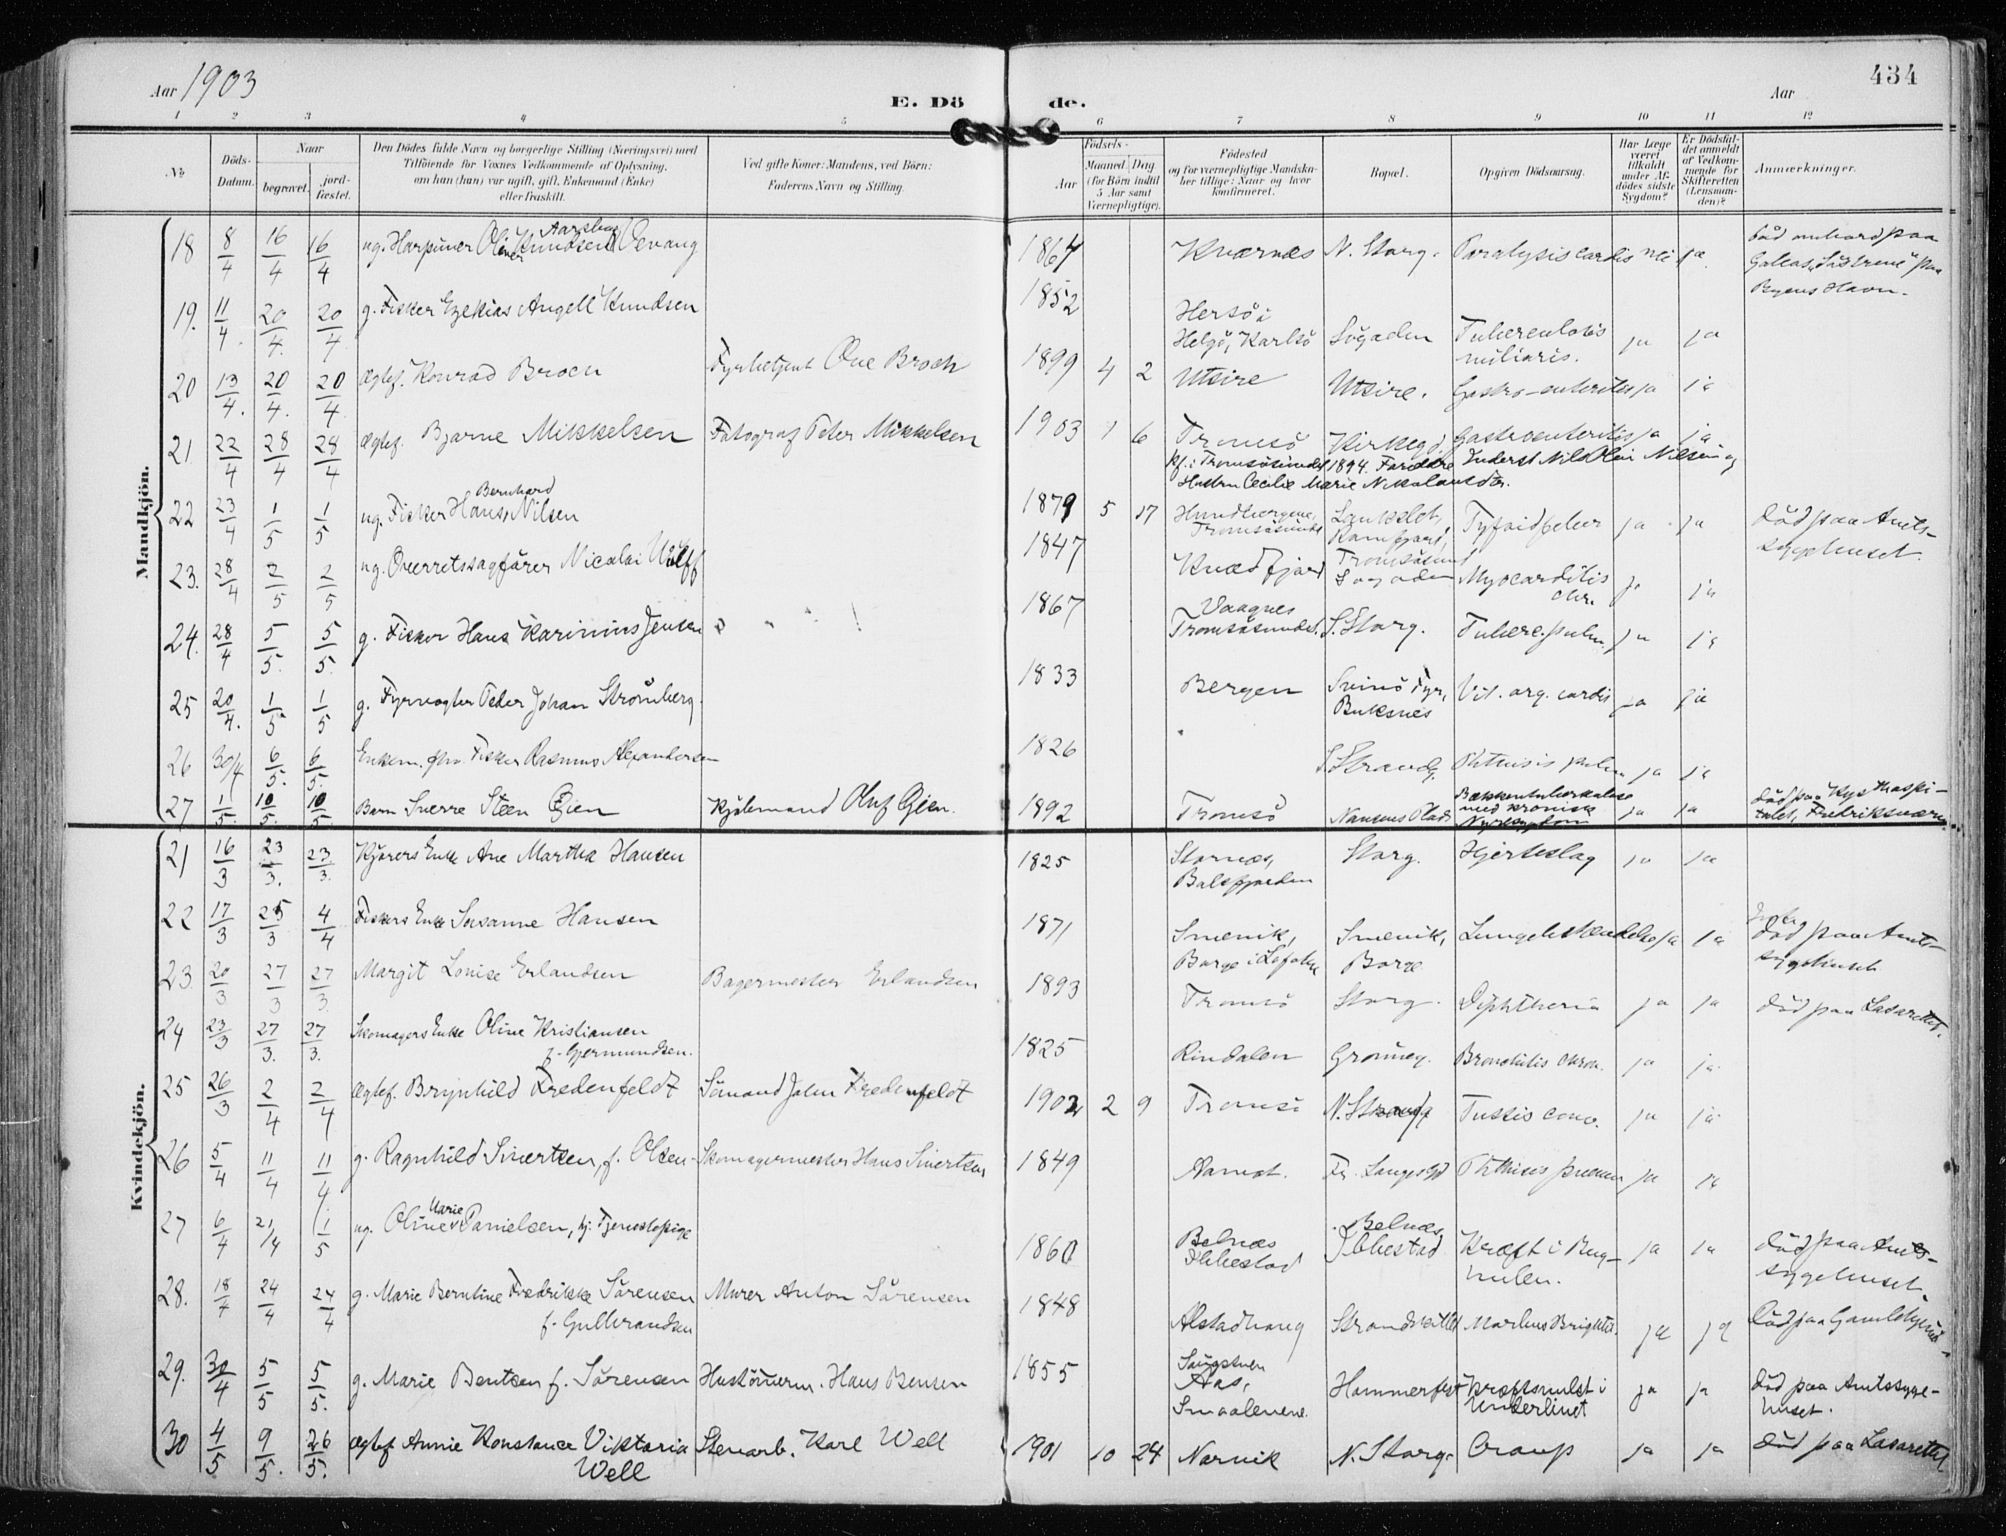 Aar 1903
E. Dö de.
Aar
434
1 2 3 4 5 6 7 8 9 10 11 12
No
Döds-Datum.
Naar
begravet.
jord-fæstet.
Den Dödes fulde Navn og borgerlige Stilling (Næringsvei) med
Tilföiende for Voxnes Vedkommende af Oplysning,
om han (hun) var ugift, gift, Enkemand (Enke)
eller fraskilt.
Ved gifte Koner: Mandens, ved Börn:
Faderens Navn og Stilling.
Födsels-
Aar
Maaned Dag
(for Börn indtil
5 Aar samt
Værnepligtige).
Födested
og for værnepligtige Mandskaber tillige: Naar og hvor
konfirmeret.
Bopæl.
Opgiven Dödsaarsag.
Har Læge
været
tilkaldt
under Afdödes sidste
Sygdom?
Er Dödsfaldet anmeldt
af Vedkommende for
Skifteretten
(Lensmanden)?
Anmærkninger.
Mandkjön.
18 8/4 16/4 16/4 ug. Harpuner Oliver Knudsen Oevang 1867 Kværnæs N. Storg. Paralysis cardis nei ja
Galeas "Söstrene" paa
Byens Havn.
19. 11/4 20/4 20/4 g. Fisker Ezekias Angell Knudsen 1852 Hersö i
Helgö, Karlsö Sögaden Tuberculosis
miliaris. ja ja
20 13/4 20/4 20/4 ægtef. Konrad Broch Fyrbetjent Ove Broch 1899 4 2 Utsire Utsire. Gastro-enteritis ja ja
21 22/4 28/4 28/4 ægtef. Bjarne Mikkelsen Fotograf Peter Mikkelsen 1903 1 6 Tromsö Kirkeg. Gastroenteritis ja ja
kf. i Tromsösundet 1894. Forældre Inderst Nils Olai Nilsen og
Hustru Cecilie Marie Nikolaisdtr.
22 23/4 1/5 1/5 ug. Fisker Hans Bernhard Nilsen 1879 5 17
Tromsösundet Tyfoidfeber ja ja död paa Amts-
sygehuset.
23. 28/4 2/5 2/5 ug. Overretssagförer Nicolai Wulff 1847 Kvædfjord Sögaden Myocarditis
chr. ja ja
24. 28/4 5/5 5/5 g. Fisker Hans Karinius Jensen 1867 Vaagnes
Tromsösundet. S. Storg. Tuberc. pulm. ja ja
25 20/4 1/5 1/5 g. Fyrvogter Peder Johan Strömberg. 1833 Bergen Svinö Fyr,
Buksnes Vit. org. cordis ja ja
26 30/4 6/5. 6/5. Enkem. fhv. Fisker Rasmus Alexandersen 1826 S. Strandg. Phthisis pulm ja ja
27 1/5. 10/5. 10/5. Barn Sverre Steen Gjen Kjöbmand Oluf Gjen. 1892 Tromsö Nansens Plads
med kronisk
ja ja död paa Kysthospi-
talet, Fredriksværn
Kvindekjön.
21 16/3 23/3. 23/3. Kjörers Enke Ane Martha Hansen 1825 Stornæs,
Balsfjorden Storg. Hjerteslag ja ja
22 17/3 25/3 4/4 Fiskers Enke Susanne Hansen 1871 Smevik,
Borge i Lofoten Smevik,
Borge Lungebetændelse ja ja död paa Amts-
sygehuset
23 20/3 27/3 27/3. Margit Louise Erlandsen Bagermester Erlandsen 1893 Tromsö Storg. Diphtheria ja ja död paa Lasarettet.
24 23/3 27/3. 27/3. Skomagers Enke Oline Kristiansen
f. Gjermundsen. 1825 Rindalen Grönneg. Bronchitis chron. ja ja
25 26/3 2/4 2/4 ægtef. Brynhild Fredenfeldt Sömand John Fredenfeldt 1902 2 9 Tromsö N. Strandg Tussis conv. ja ja
26 5/4 11/4 11/4 g. Ragnhild Sivertsen, f. Olsen- Skomagermester Hans Sivertsen 1849 Aamot. Fr. Langesgd Phthisis pulmon ja ja
27 6/4 21/4 1/5 ug. Oline Marie Danielsen, Tjenestepige 1860 Belnæs
Ibbestad Belnæs
Ibbestad Kræft i Bug-
hulen. ja ja död paa Amts-
sygehuset.
28. 18/4 24/4 24/4 g. Marie Berntine Fredrikke Sörensen
f. Gulbrandsen Murer Anton Sörensen 1848 Alstadhaug Strandskillet Morbus Brightii. ja ja död paa Gamlehjemmet
29. 30/4 5/5 5/5. g. Marie Bentsen f. Sörensen Hustömerm. Hans Bensen 1855
Aas,
Smaalenene. Hammerfest Kræftsvulst i
Underlivet ja ja död paa Amtssyge-
huset.
30 4/5 9/5. 26/5. ægtef Annie Konstance Viktoria
Well Stenarb. Karl Well 1901 10 24 Narvik N. Storg. Croup ja ja död paa Lasarettet